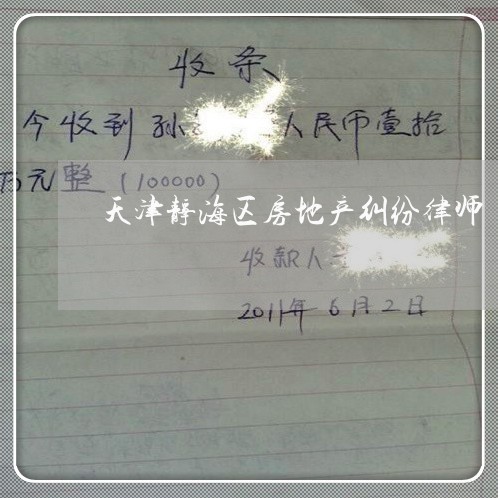 收条
今收到孙 人民币壹拾
万元整(100000)
天津静海区房地产纠纷律师
收款人
2011年6月2日